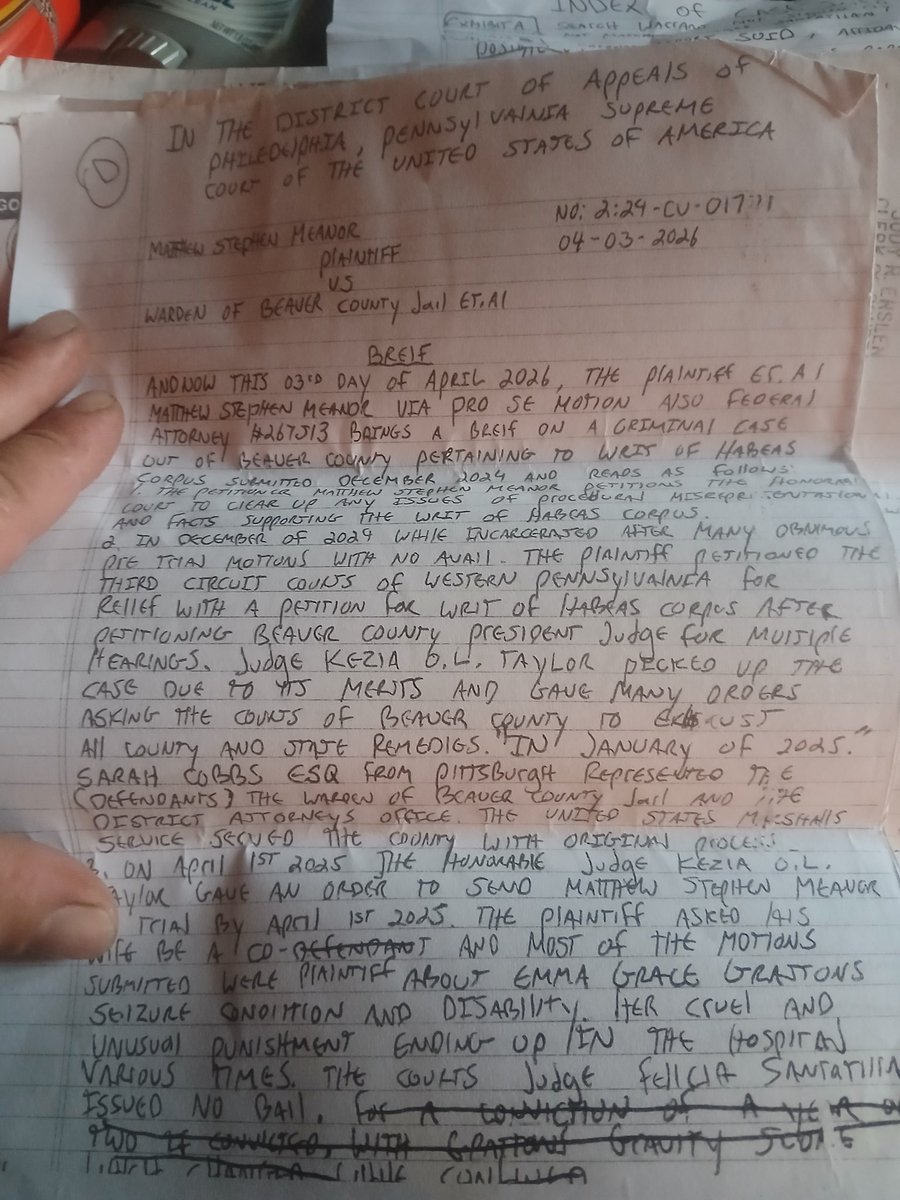 INDEX OF
EXHIBIT A SEARCH WARRANT
SUID, AFFIDA
GO
D
IN THE DISTRICT COURT OF APPEALS OF
PHILEDElPHIA, PENNSylVAINIA SUPREME
COURT OF THE UNITED STATES OF AMERICA
NO: 2:24-CV-017
04-03-2026
MATTHEW STEPHEN MEANOR
PlAINTIFF
VS
WARDEN OF BEAVER COUNTY Jail ET. Al
BREIF
AND NOW THIS 03RD DAY OF APRIL 2026, THE PlAINTIFF ET. Al
MATTHEW STEPHEN MEANOR VIA PRO SE MOTION AlSO FEDERAl
ATTORNEY #267513 BRINGS A BREIF ON A CRIMINAL CASE
OUT OF BEAVER COUNTY PERTAINING TO WRIT OF HABEAS
CORPUS SUBMITTED DECEMBER 2024 AND READS AS FOllOWS:
1. THE PETITIONER MATTHEW STEPHEN MEANOR PETITIONS THE HONORABl
COURT TO CLEAR UP ANY ISSUES OF PROCEDURAL MISREPRISENTATION
AND FACTS SUPPORTING THE WRIT OF HABEAS CORPUS.
2 IN DECEMBER OF 2024 WHILE INCARCERATED AFTER MANY OBNIMOUS
PRE TRIAL MOTIONS WITH NO AVAIL. THE PLAINTIFF PETITIONED THE
THIRD CIRCUIT COURTS OF WESTERN PENNSylVAINIA FOR
RELIEF WITH A PETITION FOR WRIT OF HABEAS CORPUS AFTER
PETITIONING BEAVER COUNTY PRESIDENT JUDGE FOR MULTIPLE
HEARINGS. JUDGE KEZIA O.L. TAYLOR PICKED UP THE
CASE DUE TO ITS MERITS AND GAVE MANY ORDERS
ASKING THE COURTS OF BEAVER COUNTY TO
All COUNTY AND STATE REMEDIES. "IN JANUARY OF 2025."
SARAH COBBS ESQ FROM PITTSBURGH REPRESENTED THE
(DEFENDANTS) THE WARDEN OF BEAVER COUNTY Jail AND THE
DISTRICT ATTORNEYS OFFICE. THE UNITED STATES MARSHAlS
SERVICE SERVED THE COUNTY WITH ORIGINAL PROCESS
3. ON APRIL 1ST 2025 THE HONORABLE JUDGE KEZIA O.L.
TAYLOR GAVE AN ORDER TO SEND MATTHEW STEPHEN MEANOR
TRIAL BY APRIL 1ST 2025. THE PLAINTIFF ASKED HIS
WIFE BE A CO-DEFENDANT AND MOST OF THE MOTIONS
SUBMITTED WERE PlAINTIFF ABOUT EMMA GRACE GRATTONS
SEIZURE CONDITION AND DISABILITY. HER CRUEL AND
UNUSUAL PUNISHMENT ENDING UP IN THE HOSPITAL
VARIOUS TIMES. THE COURTS JUDGE FELICIA SANTATILLA
ISSUED NO BAIL. FOR A CONVICTION OF A YEAR OR
TWO IF CONVICTED, WITH GRATTONS GRAVITY SCORE